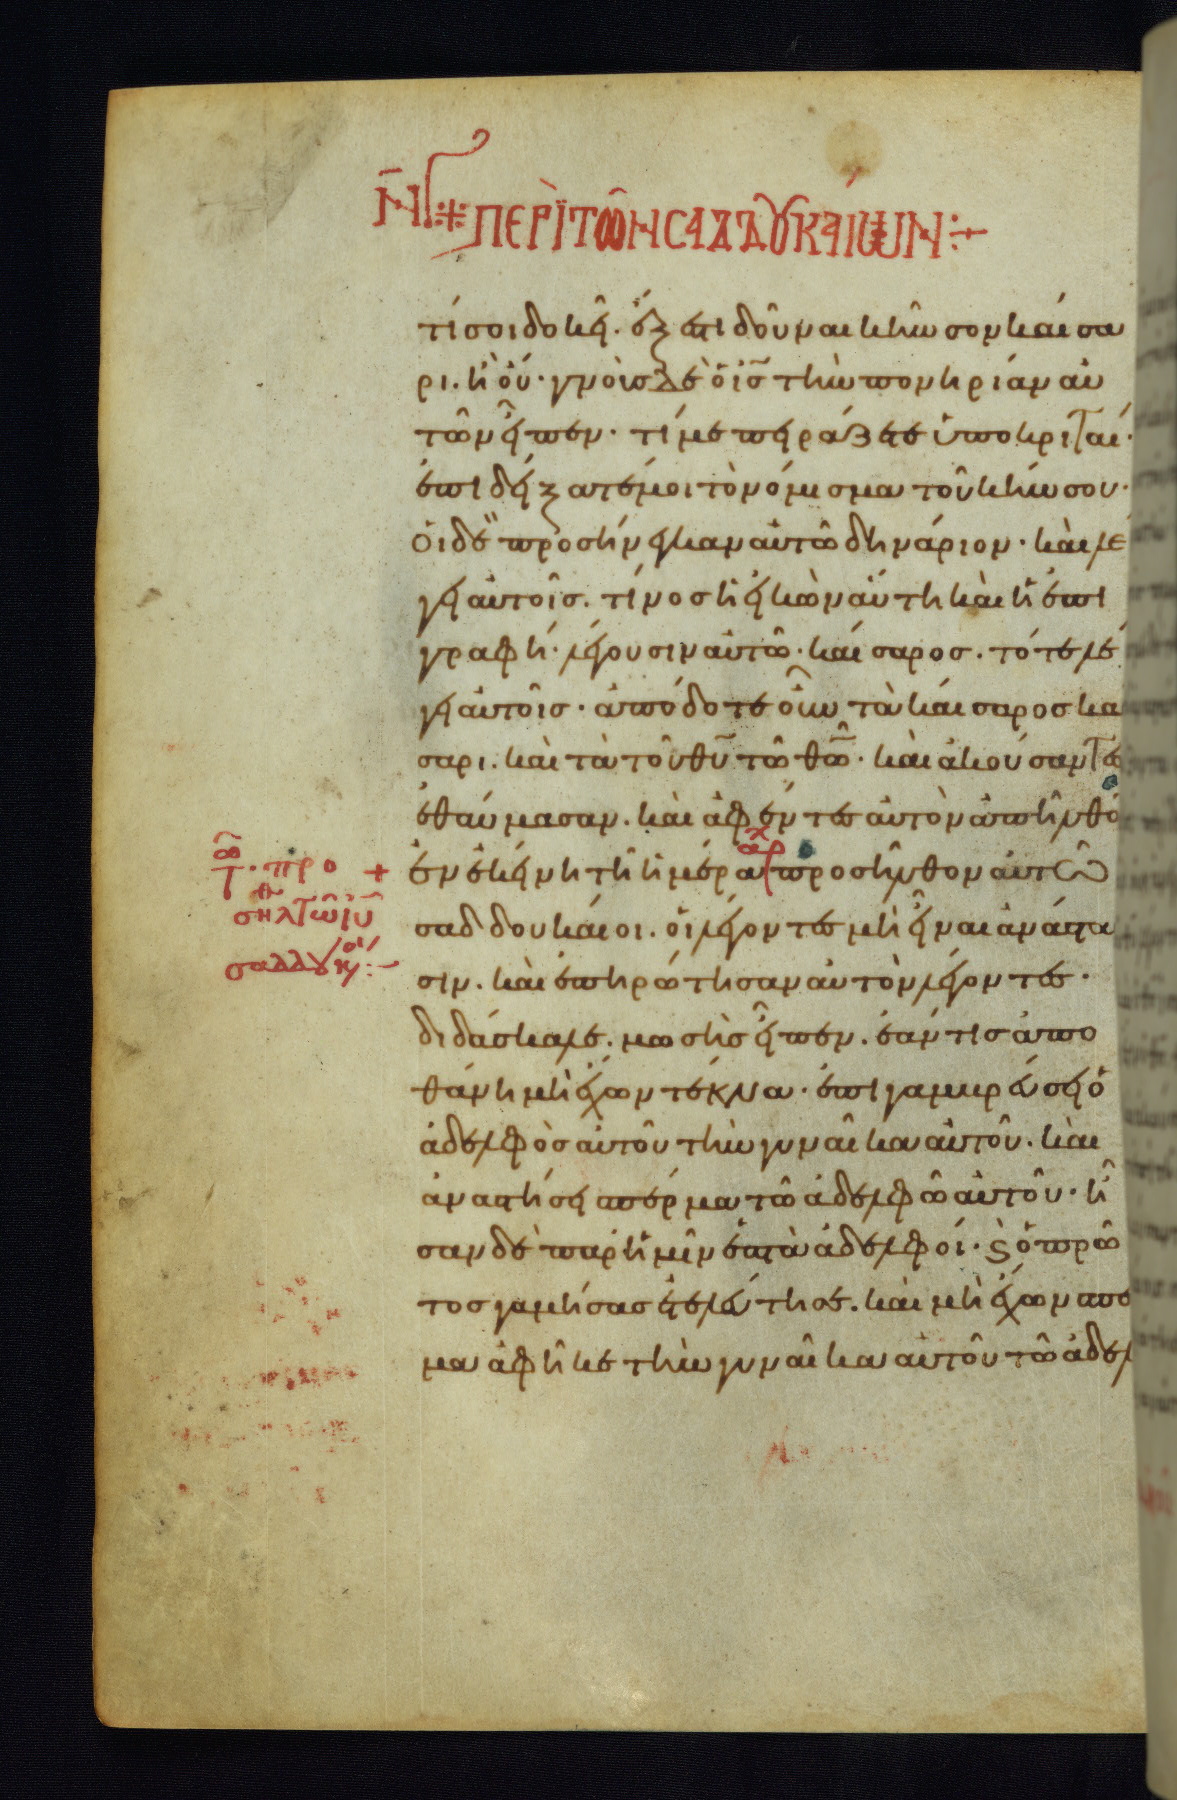 Ν̅Γ ⁜ ΠΕΡῚ ΤΩ͂Ν ΣΑΔΔΟΥΚΑΊΩΝ :–
τί σοι δοκεῖ. ἔξεστι δοῦναι κῆνσον καίσα
ρι. ἢ οὔ· γνοὺς δὲ ὁ ις̅ τὴν πονηρίαν αὐ
τῶν εἶπεν· τί με πειράζετε ὑποκριταί·
ἐπιδείξατέ μοι τὸ νόμισμα τοῦ κήνσου·
οἱ δὲ προσήνεγκαν αὐτῶ δηνάριον· καὶ λέ
γει αὐτοῖς. τίνος ἡ εἰκὼν αὕτη καὶ ἡ ἐπι
γραφή· λέγουσιν αὐτῶ· καίσαρος. τότε λέ
γει αὐτοῖς· ἀπόδοτε οὖν τὰ καίσαρος και
σαρι. καὶ τὰ τοῦ θυ̅ τῶ θω̅· καὶ ἀκούσαντες
ἐθαύμασαν. καὶ ἀφέντες αὐτὸν ἀπῆλθο
ἐν ἐκείνη τῆ ἡμέρα προσῆλθον αὐτῶ
ἀρχ
τῶ
κ. προ +
σηλθ τῶ ιυ̅
σαδδουκαῖοι :–
σαδδουκαίοι. οἱ λέγοντες μὴ εἶναι ἀνάστα
σιν. καὶ ἐπηρώτησαν αὐτὸν λέγοντες·
διδάσκαλε. μωσῆς εἶπεν. ἐάν τις ἀπο
θάνη μὴ ἔχων τέκνα· ἐπιγαμβρεύσει ὁ
ἀδελφὸς αὐτοῦ τὴν γυναῖκα αὐτοῦ. καὶ
ἀναστήσει σπέρμα τῶ ἀδελφῶ αὐτοῦ· ἦ
σαν δὲ παρ' ἡμῖν ἑπτὰ ἀδελφοί· ϗ ὁ πρῶ
τος γαμήσας ἐτελεύτησε. καὶ μὴ ἔχων σπέρ
μα ἀφῆκε τὴν γυναῖκα αὐτοῦ τῶ ἀδελ